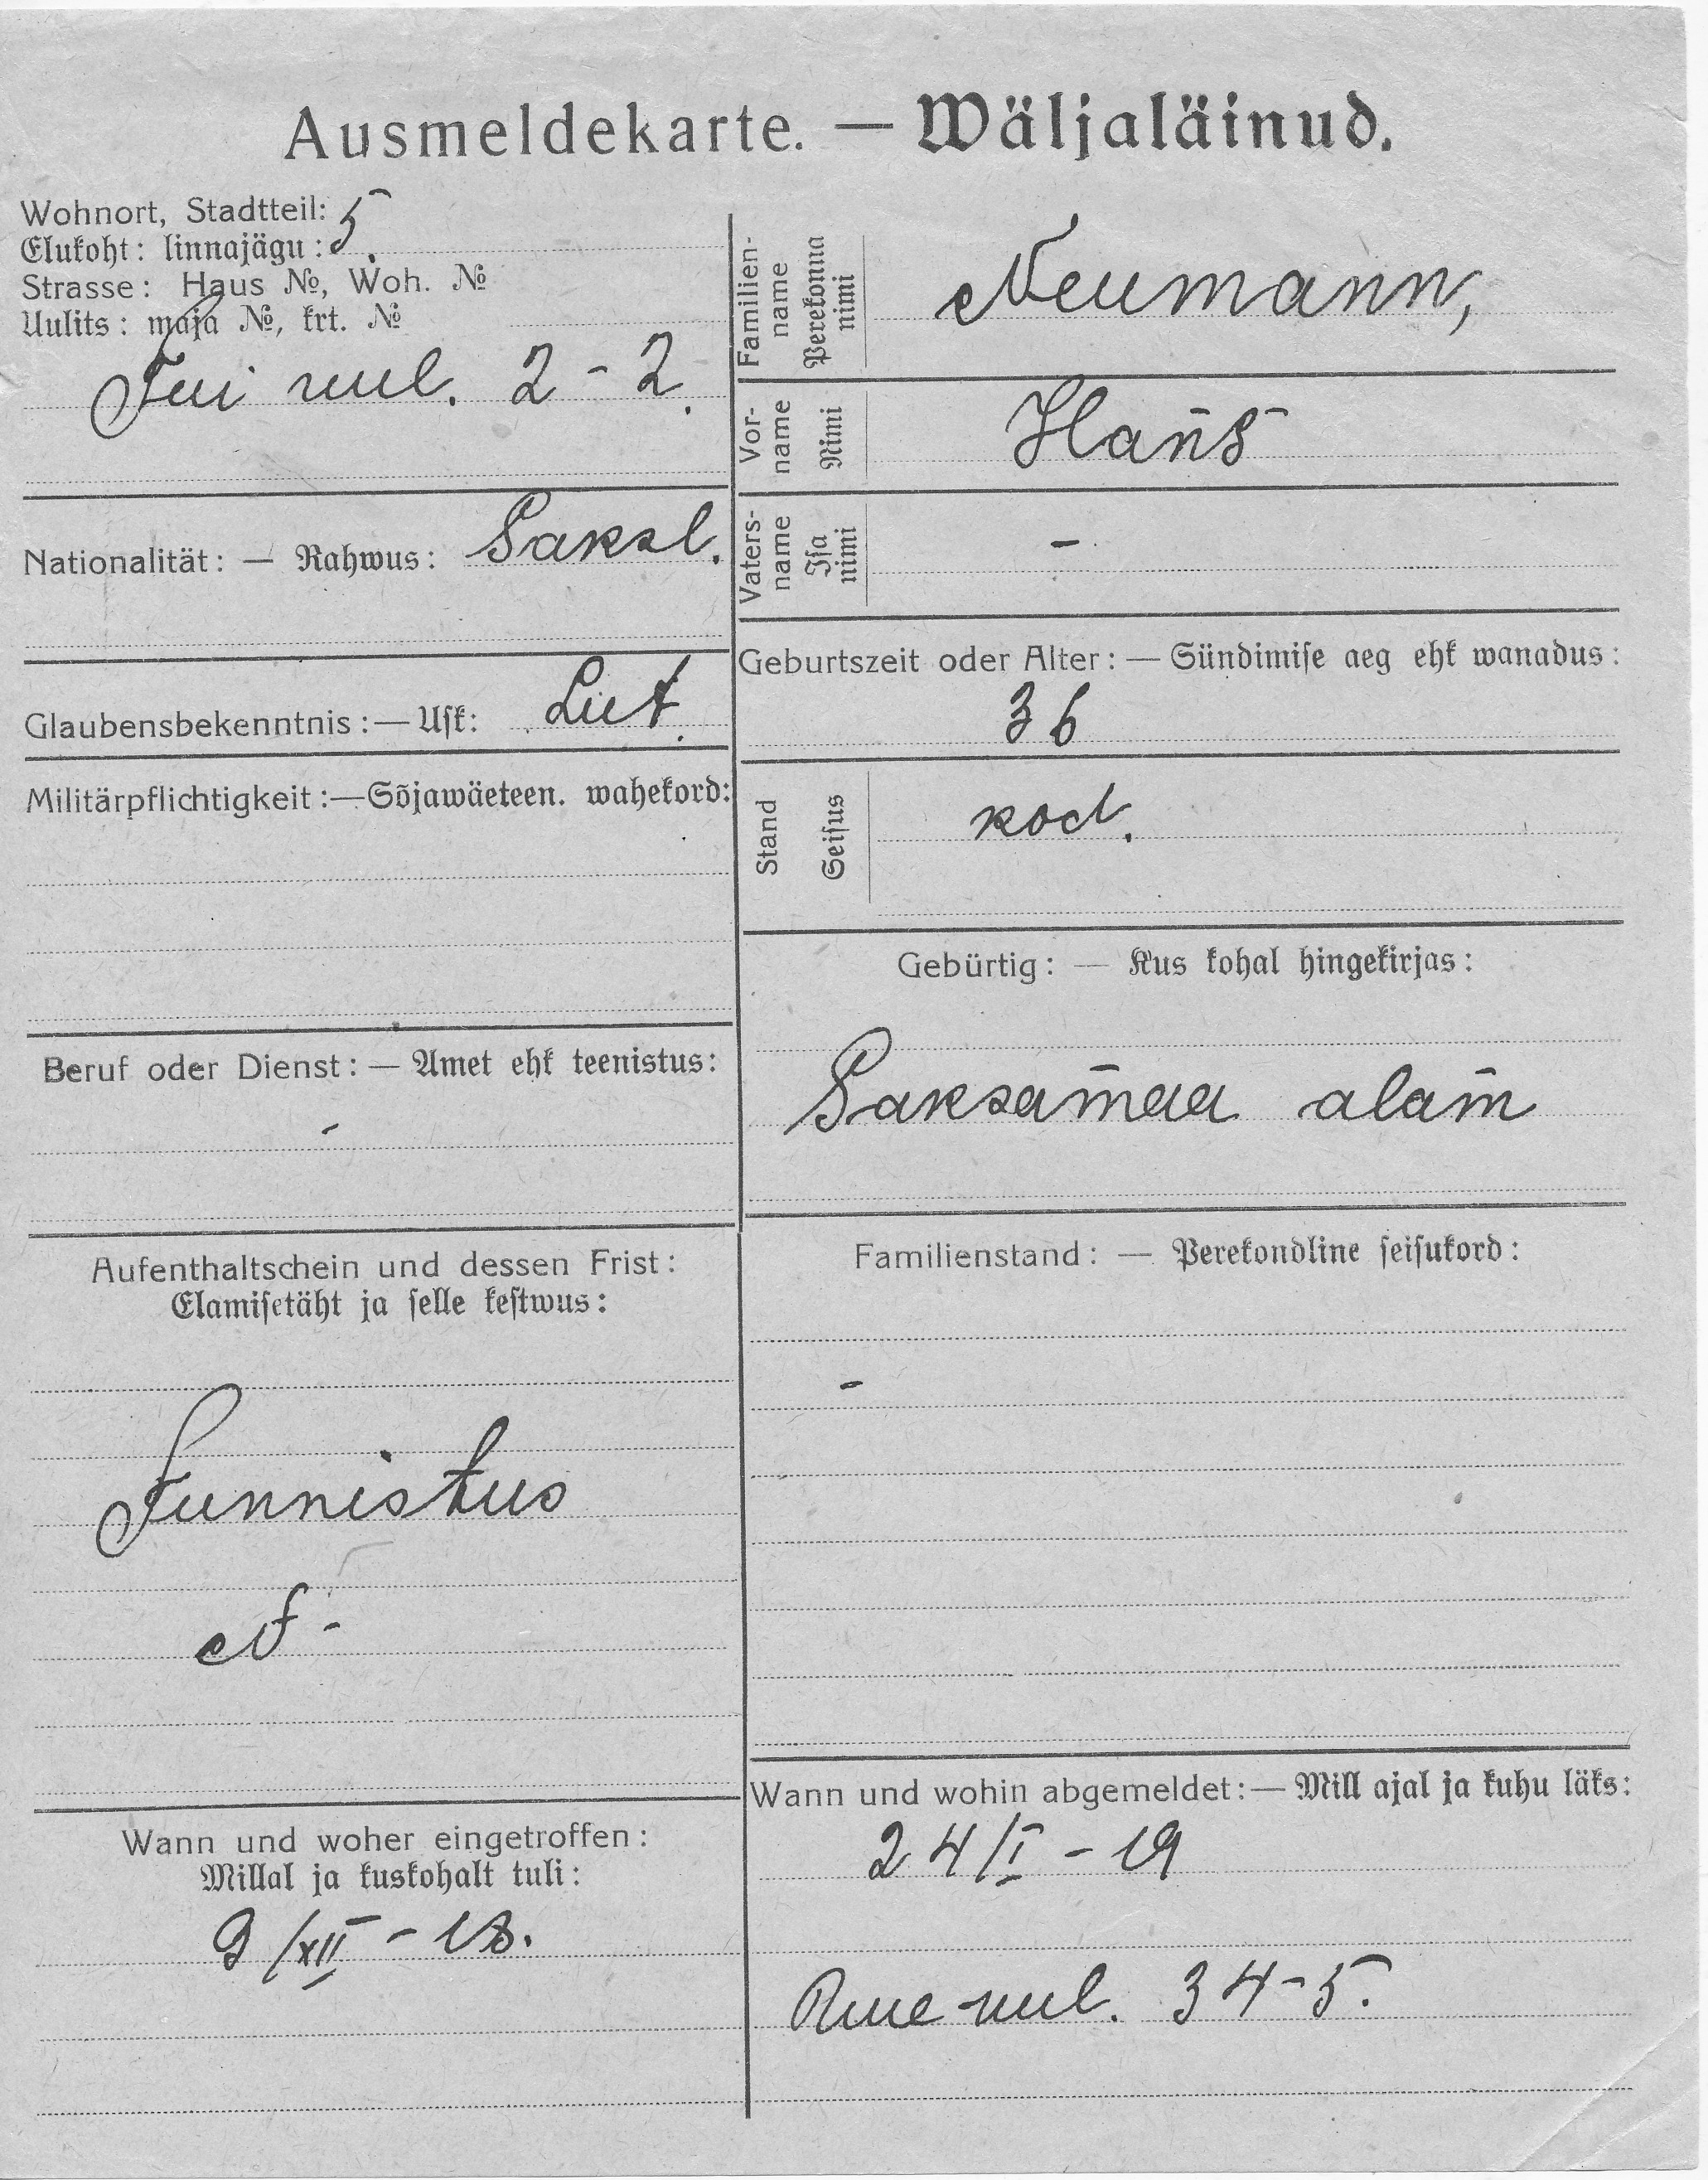 Ausmeldekarte. — Wäljaläinud.
Wohnort, Stadtteil: 5.
Elukoht: linnajägu:
Strasse: Haus №, Woh. №
Uulits: maja №, krt. №
uul. 2 - 2.
Nationalität: — Rahwus: Saksl.
Glaubensbekenntnis: — Usk: Lut.
Militärpflichtigkeit: — Sõjawäeteen. wahekord:
Beruf oder Dienst: — Amet ehk teenistus:
-
Aufenthaltschein und dessen Frist:
Elamisetäht ja selle kestwus:
Tunnistus
Wann und woher eingetroffen:
Millal ja kuskohalt tuli:
9/XII - 18.
Familien-
name
Perekonna
nimi
Neumann,
Vor-
name
Nimi
Hans
Vaters-
name
Isa
nimi
-
Geburtszeit oder Alter: — Sündimise aeg ehk wanadus:
36
Stand
Seisus
kod.
Gebürtig: — Kus kohal hingekirjas:
Saksamaa alam
Familienstand: — Perekondline seisukord:
-
Wann und wohin abgemeldet: — Mill ajal ja kuhu läks:
24/I - 19
uul. 34-5.